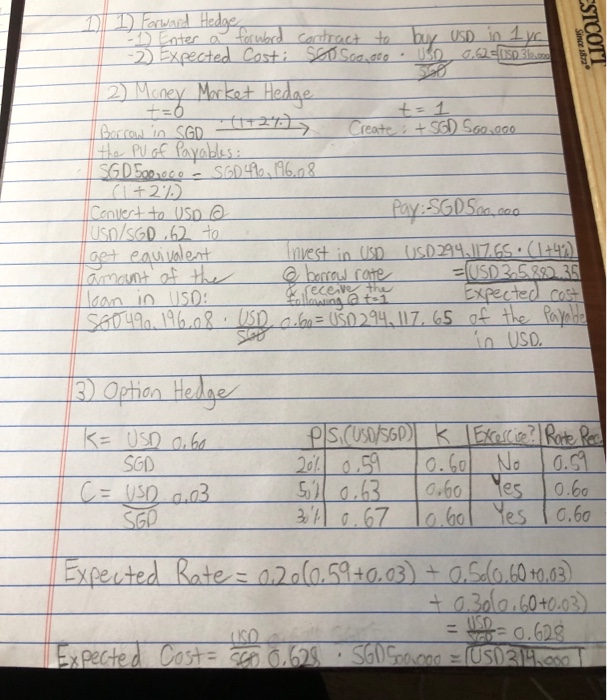 ESTCOTT
Since 1872
1) 1) Forward Hedge
-1) Enter a forward contract to buy USD in 1 yr
-2) Expected Cost: SGD 500,000 · USD/SGD 0.62 = USD 310,000
2) Money Market Hedge
t=0 t=1
Borrow in SGD ·(1+2%) → Create: + SGD 500,000
the PV of Payables:
SGD 500,000 = SGD 490,196.08
(1+2%)
Convert to USD @ Pay: -SGD 500,000
USD/SGD .62 to
get equivalent Invest in USD USD 294,117.65 · (1+4%)
amount of the @ borrow rate = USD 305,882.35
loan in USD: & receive the following @ t=1 Expected cost
SGD 490,196.08 · USD/SGD 0.60 = USD 294,117.65 of the Payable
in USD.
3) Option Hedge
K = USD 0.60 P S,(USD/SGD) K Excercise? Rate Rec
SGD 20% 0.59 0.60 No 0.59
C = USD 0.03 50% 0.63 0.60 Yes 0.60
SGD 30% 0.67 0.60 Yes 0.60
Expected Rate = 0.20(0.59+0.03) + 0.50(0.60+0.03)
+ 0.30(0.60+0.03)
= USD/SGD = 0.628
Expected Cost = USD/SGD 0.628 · SGD 500,000 = USD 314,000